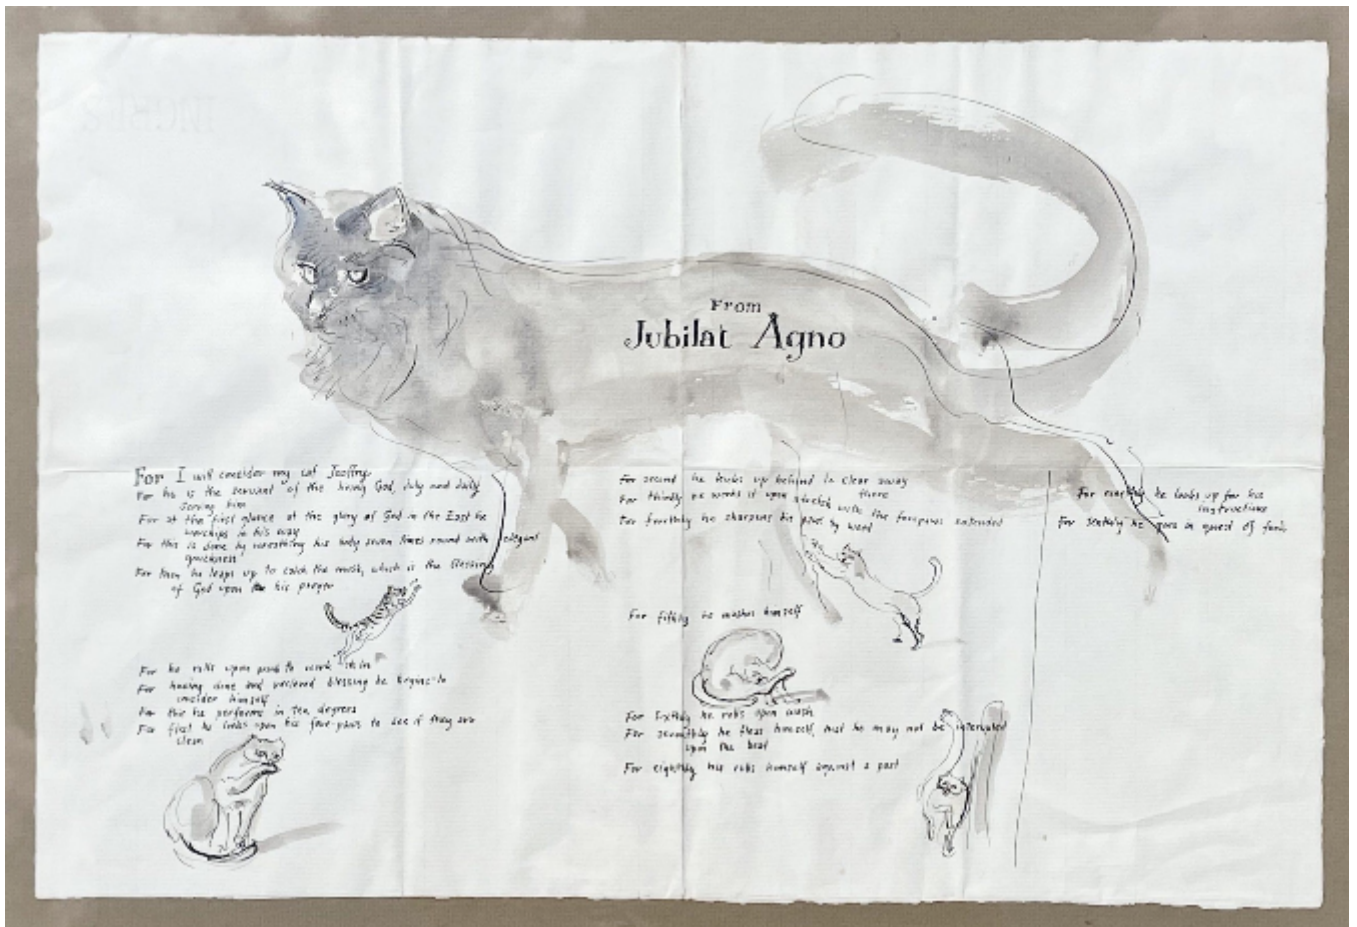 INGRES
From
Jubilat Agno
For I will consider my cat Jeoffry
For he is the servant of the living God, duly and daily
serving him
For at the first glance of the glory of God in the East he
worships in his way
For this is done by wreathing his body seven times round with elegant
quickness
For then he leaps up to catch the musk, which is the blessing
of God upon his prayer
For he rolls upon prank to work it in
For having done and received blessing he begins to
consider himself
For this he performs in ten degrees
For first he looks upon his fore-paws to see if they are
clean
For second he kicks up behind to clear away
there
For thirdly he works it upon stretch with the forepaws extended
For fourthly he sharpens his paws by wood
For fifthly he washes himself
For sixthly he rolls upon wash
For seventhly he fleas himself, that he may not be interrupted
upon the beat
For eightly he rubs himself against a post
For he looks up for his
instructions
For tenthly he goes in quest of food